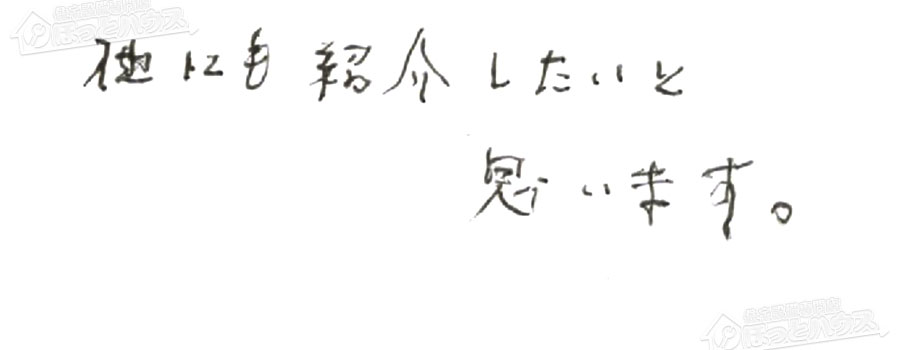 他にも紹介したいと
思います。
ほっとハウス
ほっとハウス